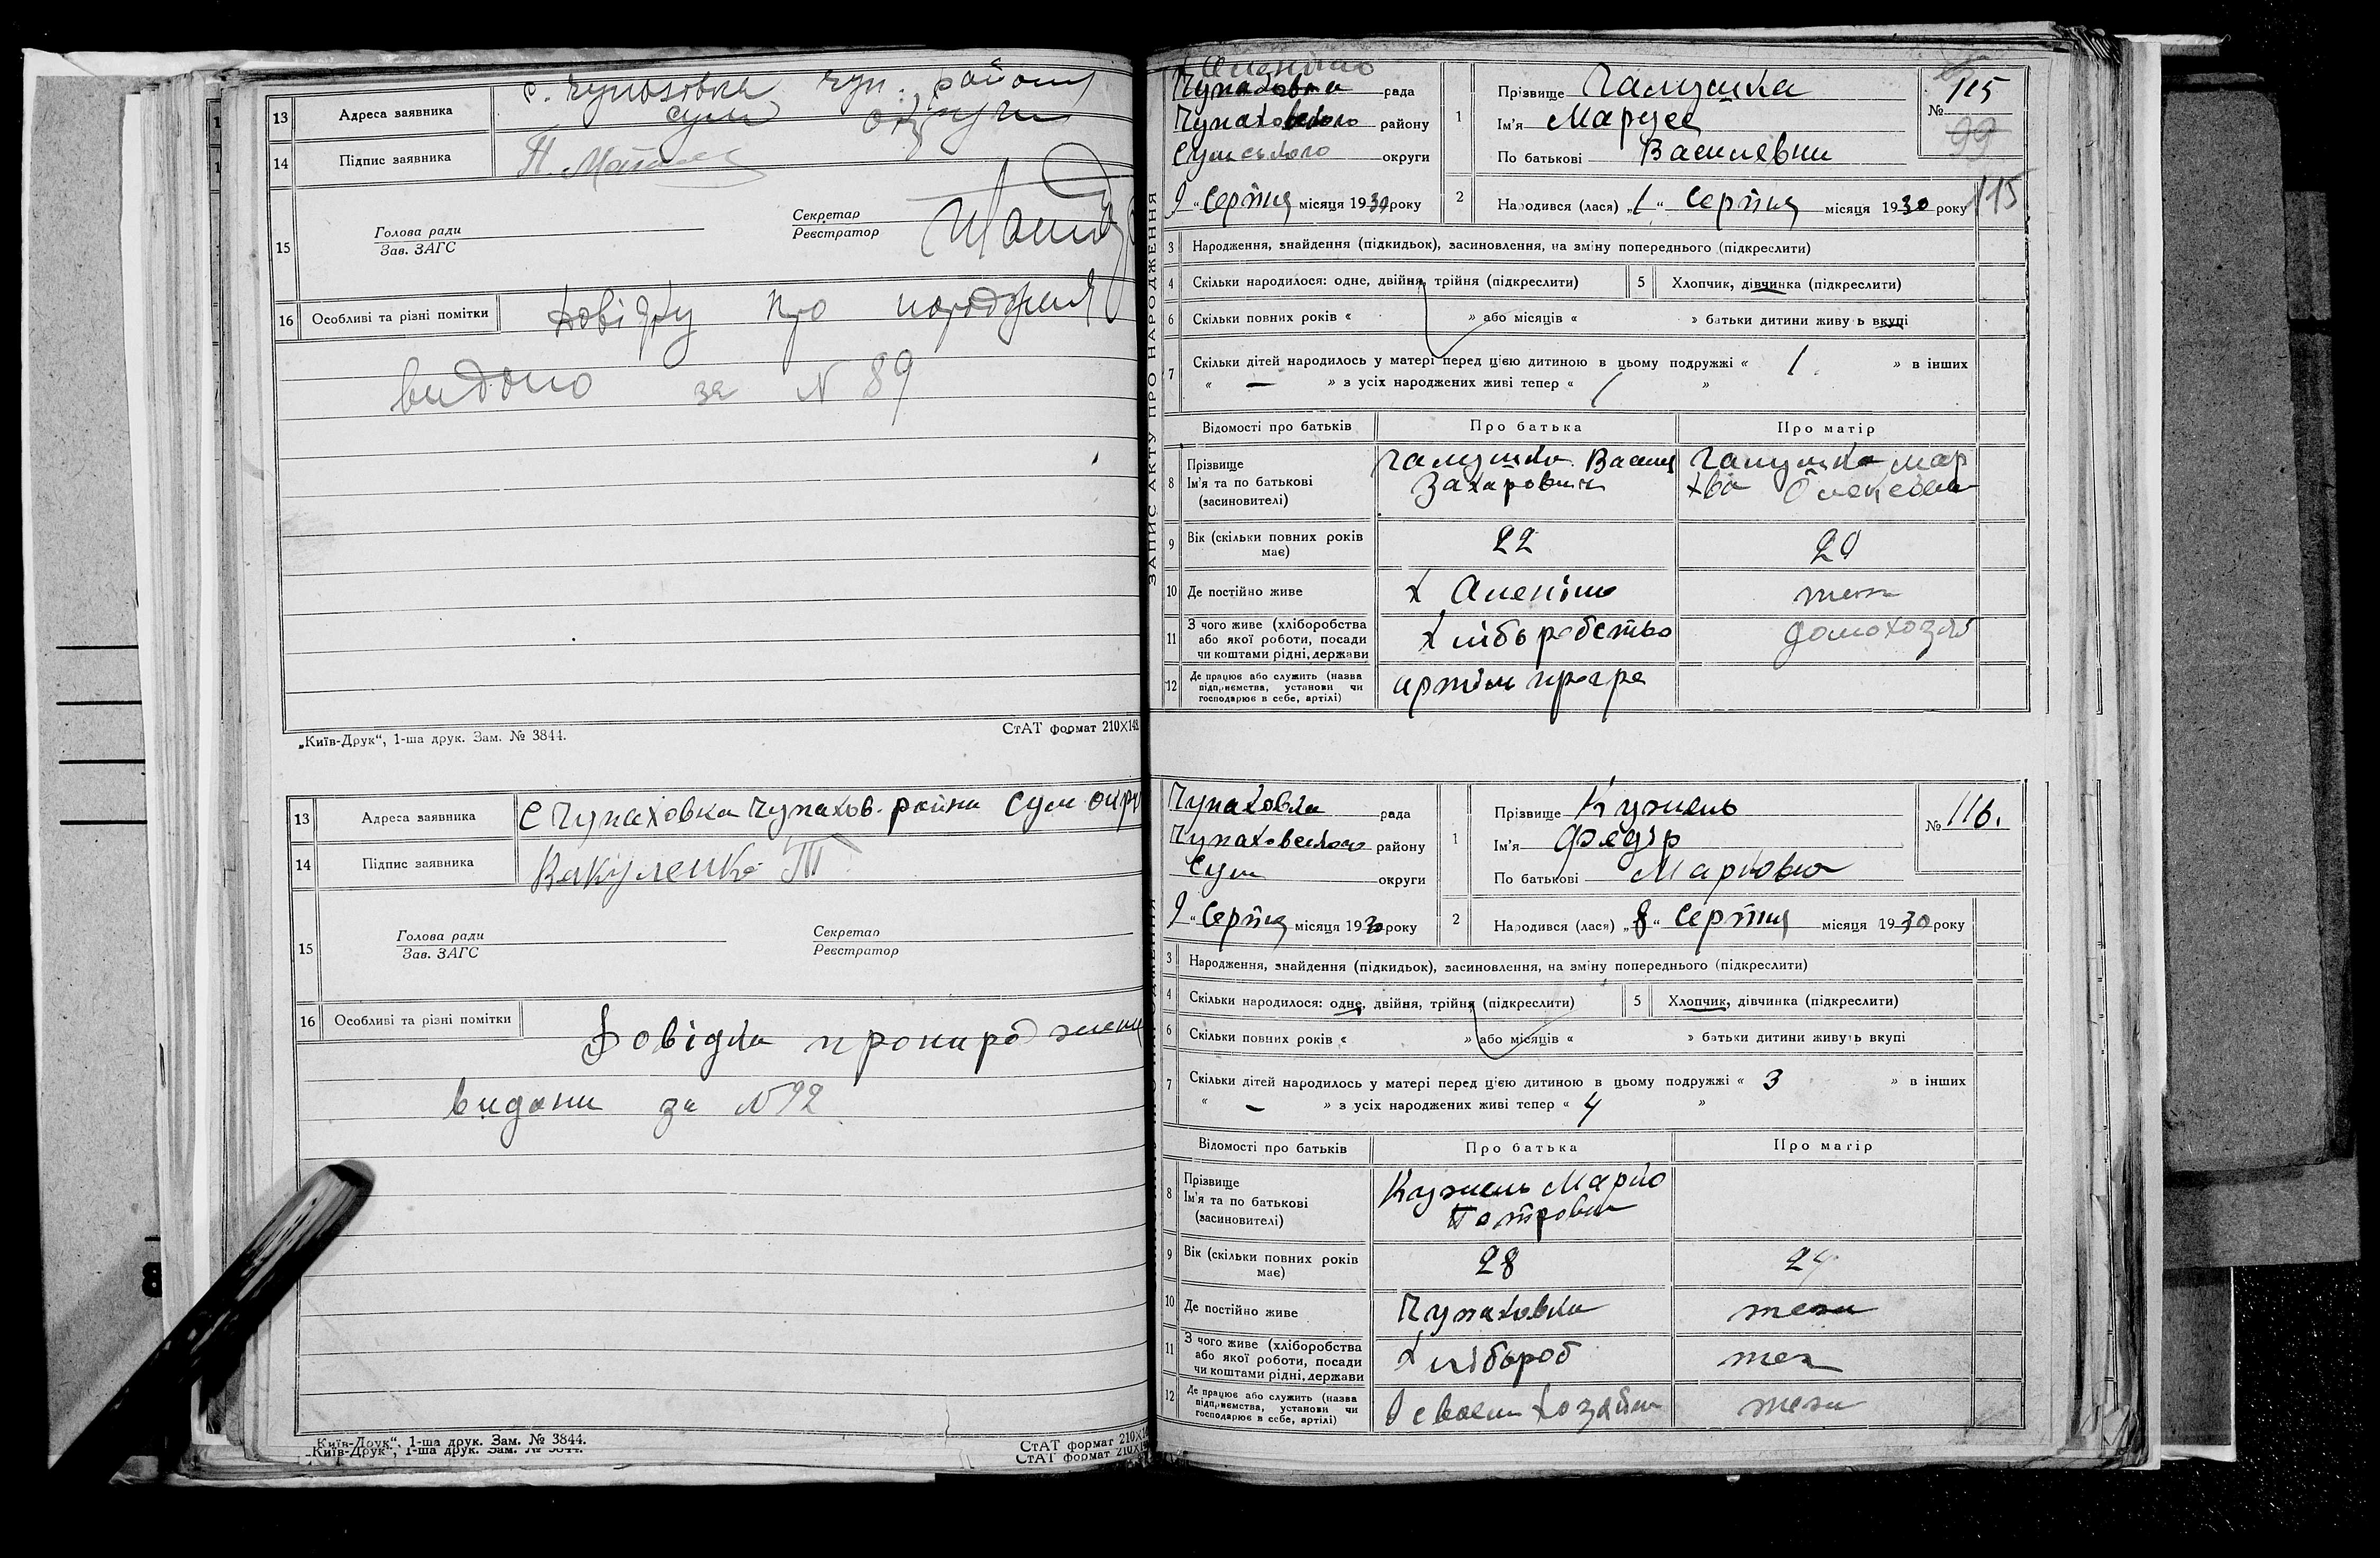 13 Адреса заявника с. Чупахівка Чуп. району
Сум округи
14 Підпис заявника П.
15 Голова ради
Зав. ЗАГС
Секретар
Реєстратор
16 Особливі та різні помітки довідку про народження
видано за N 89
„Київ-Друк“, 1-ша друк. Зам. № 3844.
СтАТ формат 210X148
13 Адреса заявника С Чупаховка Чупахов. района Сум окру
14 Підпис заявника Вакуленко Т
15 Голова ради
Зав. ЗАГС
Секретар
Реєстратор
16 Особливі та різні помітки Довідка про народження
видани за N 92
„Київ-Друк“, 1-ша друк. Зам. № 3844.
„Київ-Друк“, 1-ша друк. Зам. № 3844.
СтАТ формат 210X
СтАТ формат 210X
ЗАПИС АКТУ ПРО НАРОДЖЕННЯ
Чупаховка рада
Чупаховского району
Сумського округи
9 “ Серпня місяця 1930 року
1 Прізвище Галушка
Ім'я Маруся
По батькові Василевни
№ 115
99
115
2 Народився (лася) „1“ Серпня місяця 1930 року
3 Народження, знайдення (підкидьок), засиновлення, на зміну попереднього (підкреслити)
4 Скільки народилося: одне, двійня, трійня (підкреслити) 5 Хлопчик, дівчинка (підкреслити)
6 Скільки повних років « » або місяців « » батьки дитини живуть вкупі
7 Скільки дітей народилось у матері перед цією дитиною в цьому подружжі « 1 » в інших
« — » з усіх народжених живі тепер « 1 »
Відомості про батьків Про батька Про матір
8 Прізвище
Ім'я та по батькові
(засновителі)
Галушко Васил
Захарович
Галушка Мар
9 Вік (скільки повних років має) 22 20
10 Де постійно живе х
11 З чого живе (хліборобства
або якої роботи, посади
чи коштами рідні, держави
Хліборобство домохозяй
12 Де працює або служить (назва
підприємства, установи чи
господарює в себе, артілі)
Чупаховка рада
Чупаховского району
Сум округи
9 “ Серпня місяця 1930 року
1 Прізвище Кужель
Ім'я Федір
По батькові Маркович
№ 116.
2 Народився (лася) „8“ Серпня місяця 1930 року
3 Народження, знайдення (підкидьок), засиновлення, на зміну попереднього (підкреслити)
4 Скільки народилося: одне, двійня, трійня (підкреслити) 5 Хлопчик, дівчинка (підкреслити)
6 Скільки повних років « » або місяців « » батьки дитини живуть вкупі
7 Скільки дітей народилось у матері перед цією дитиною в цьому подружжі « 3 » в інших
« — » з усіх народжених живі тепер « 4 »
Відомості про батьків Про батька Про матір
8 Прізвище
Ім'я та по батькові
(засиновителі)
Кужель Марко
Петрович
9 Вік (скільки повних років має) 28
10 Де постійно живе Чупаховка теж
11 З чого живе (хліборобства
або якої роботи, посади
чи коштами рідні, держави
Хлібороб теж
12 Де працює або служить (назва
підприємства, установи чи
господарює в себе, артілі)